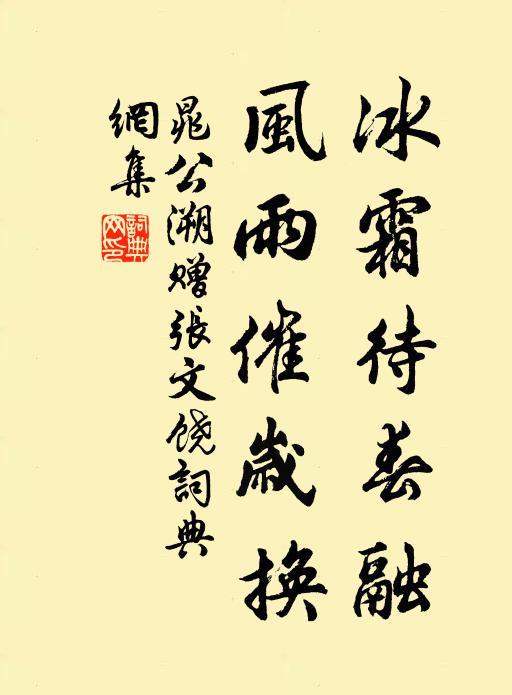 冰霜待春融
風雨催歲換
晁公溯赠張文饶詞典
網集
詞典
網印